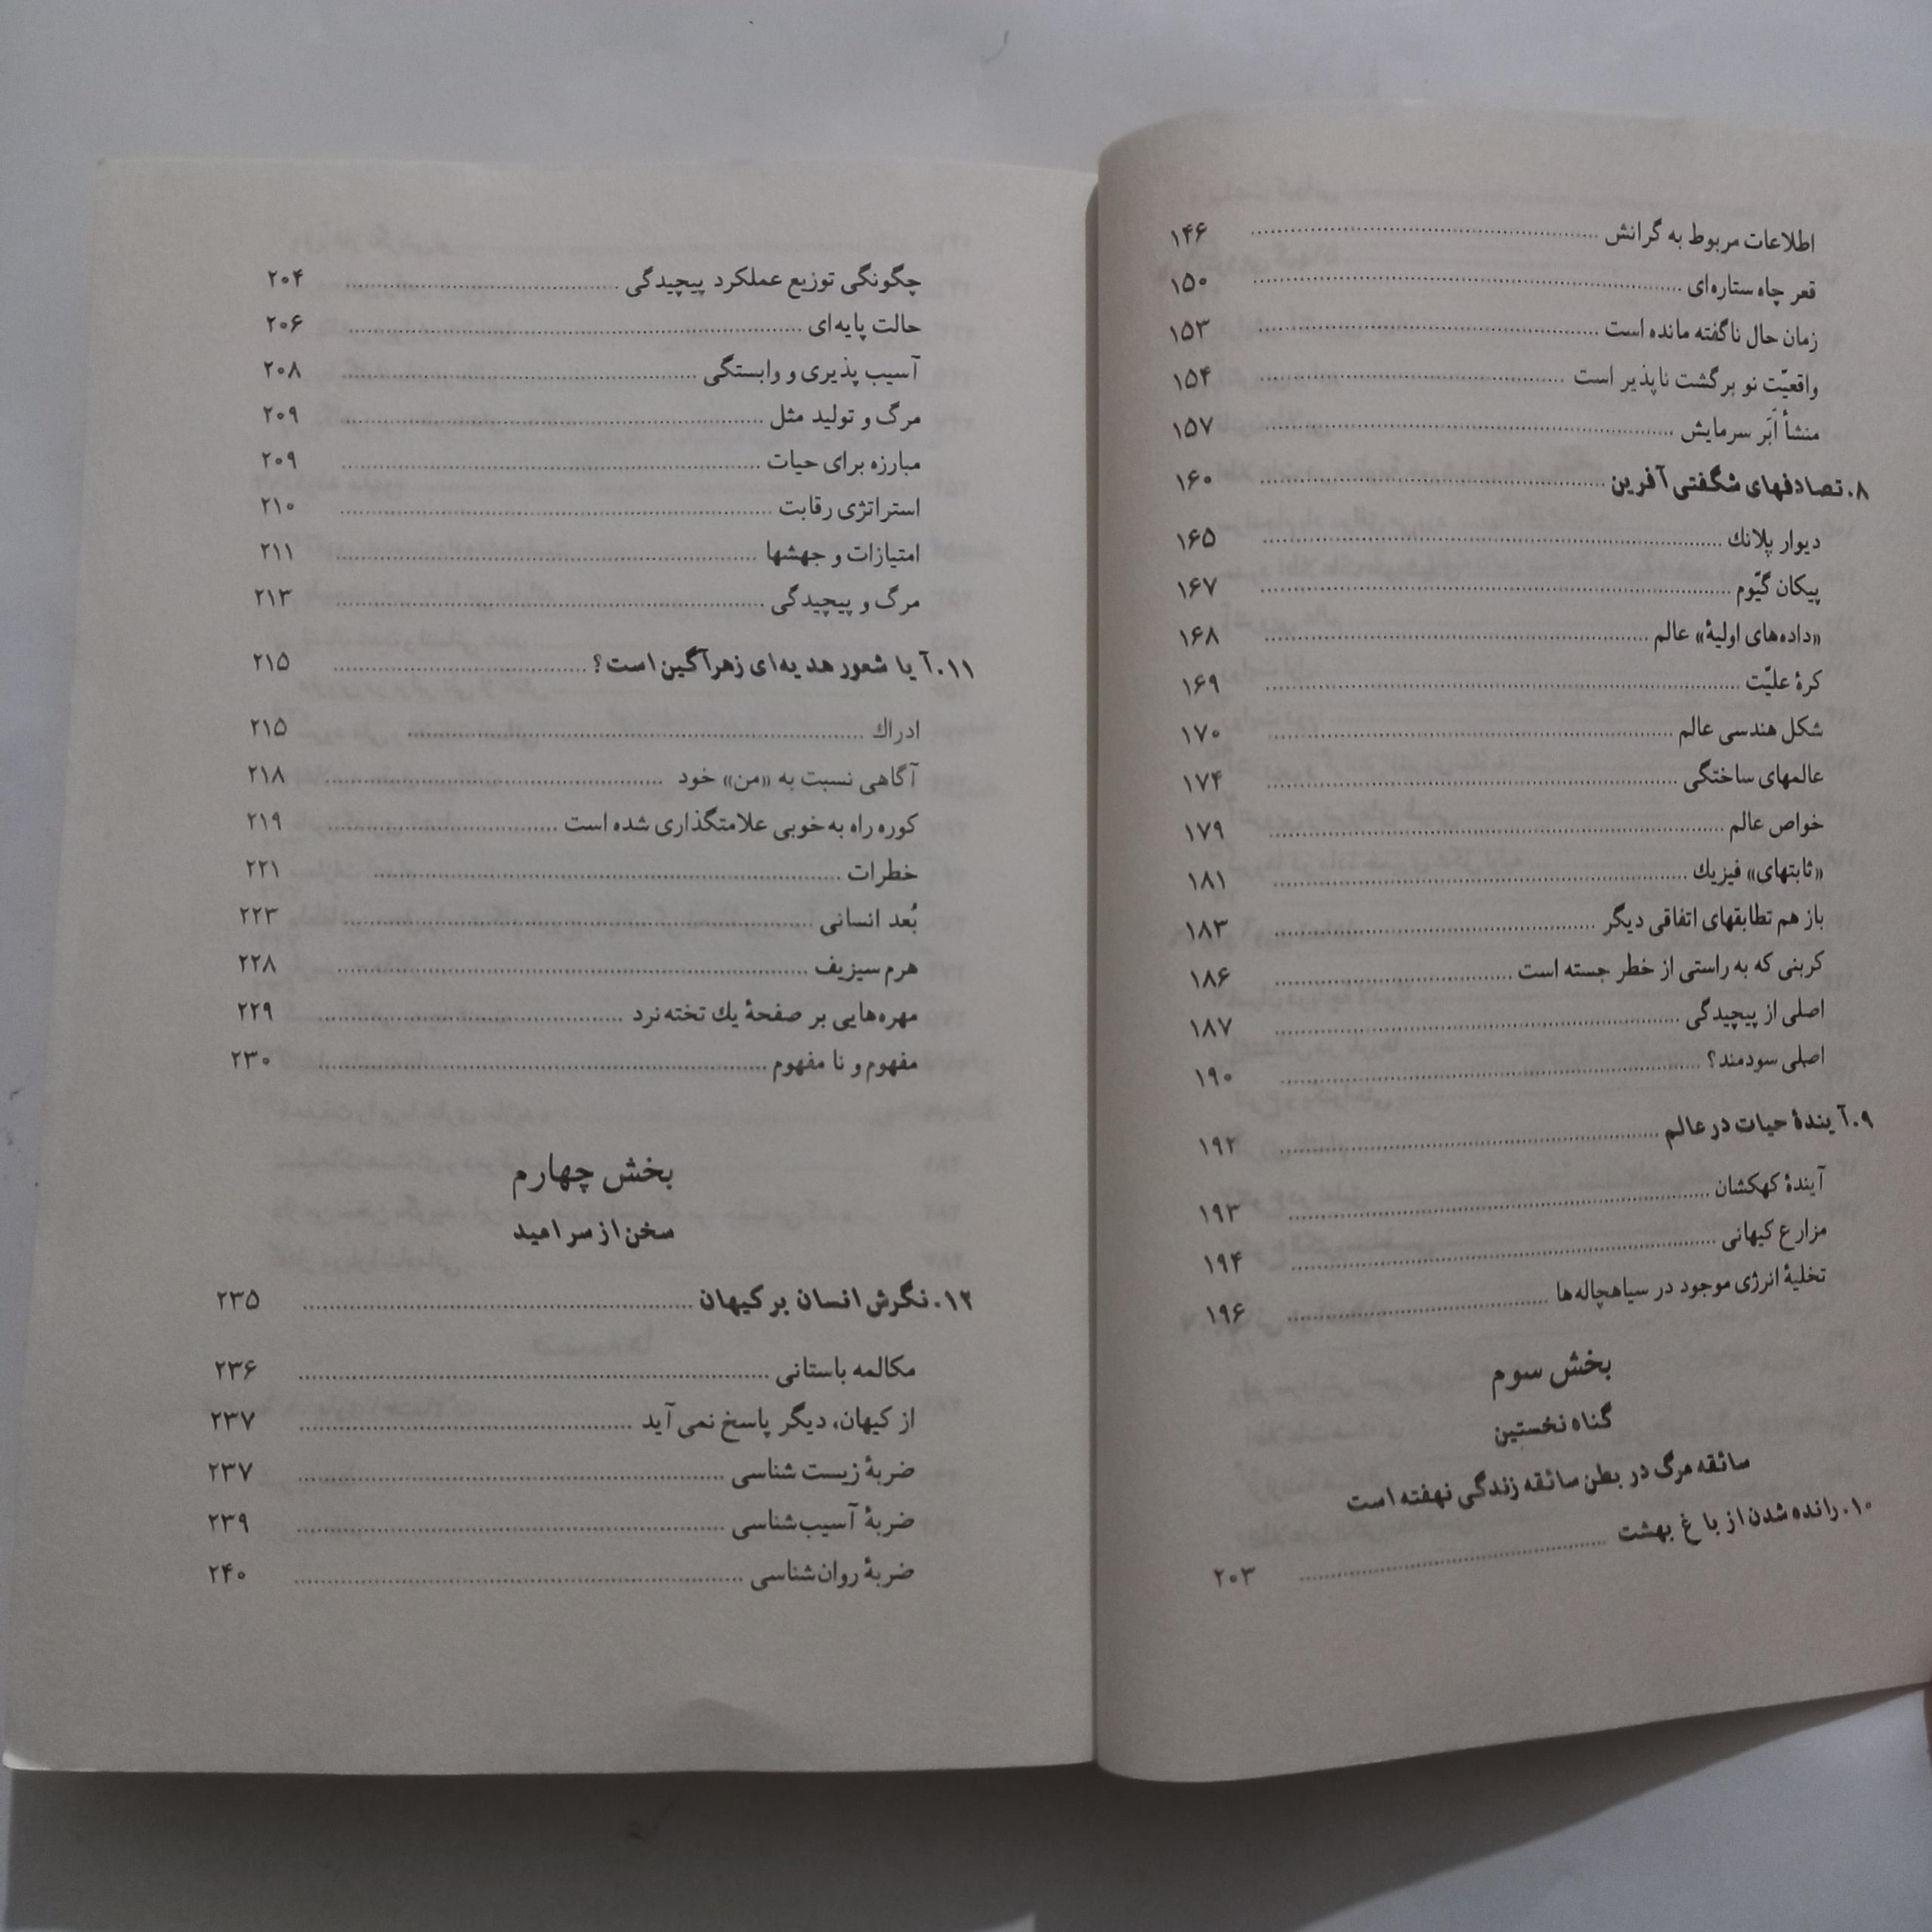 اطلاعات مربوط به گرانش ........ ۱۴۶
قعر چاه ستاره‌ای ........ ۱۵۰
زمان حال ناگفته مانده است ........ ۱۵۳
واقعیّت نو برگشت ناپذیر است ........ ۱۵۴
منشأ اَبَر سرمایش ........ ۱۵۷
۸. تصادفهای شگفتی آفرین ........ ۱۶۰
دیوار پلانك ........ ۱۶۵
پیکان گیّوم ........ ۱۶۷
«داده‌های اولیهٔ» عالم ........ ۱۶۸
کرهٔ علیّت ........ ۱۶۹
شکل هندسی عالم ........ ۱۷۰
عالمهای ساختگی ........ ۱۷۴
خواص عالم ........ ۱۷۹
«ثابتهای» فیزیك ........ ۱۸۱
باز هم تطابقهای اتفاقی دیگر ........ ۱۸۳
کربنی که به راستی از خطر جسته است ........ ۱۸۶
اصلی از پیچیدگی ........ ۱۸۷
اصلی سودمند؟ ........ ۱۹۰
۹. آیندهٔ حیات در عالم ........ ۱۹۲
آیندهٔ کهکشان ........ ۱۹۳
مزارع کیهانی ........ ۱۹۴
تخلیهٔ انرژی موجود در سیاهچاله‌ها ........ ۱۹۶
بخش سوم
گناه نخستین
سائقه مرگ در بطن سائقه زندگی نهفته است
۱۰. رانده شدن از باغ بهشت ........ ۲۰۳
چگونگی توزیع عملکرد پیچیدگی ........ ۲۰۴
حالت پایه‌ای ........ ۲۰۶
آسیب پذیری و وابستگی ........ ۲۰۸
مرگ و تولید مثل ........ ۲۰۹
مبارزه برای حیات ........ ۲۰۹
استراتژی رقابت ........ ۲۱۰
امتیازات و جهشها ........ ۲۱۱
مرگ و پیچیدگی ........ ۲۱۳
۱۱. آیا شعور هدیه‌ای زهرآگین است؟ ........ ۲۱۵
ادراك ........ ۲۱۵
آگاهی نسبت به «من» خود ........ ۲۱۸
کوره راه به‌خوبی علامتگذاری شده است ........ ۲۱۹
خطرات ........ ۲۲۱
بُعد انسانی ........ ۲۲۳
هرم سیزیف ........ ۲۲۸
مهره‌هایی بر صفحهٔ یك تخته نرد ........ ۲۲۹
مفهوم و نا مفهوم ........ ۲۳۰
بخش چهارم
سخن از سر امید
۱۲. نگرش انسان بر کیهان ........ ۲۳۵
مکالمه باستانی ........ ۲۳۶
از کیهان، دیگر پاسخ نمی آید ........ ۲۳۷
ضربهٔ زیست شناسی ........ ۲۳۷
ضربهٔ آسیب‌شناسی ........ ۲۳۹
ضربهٔ روان‌شناسی ........ ۲۴۰